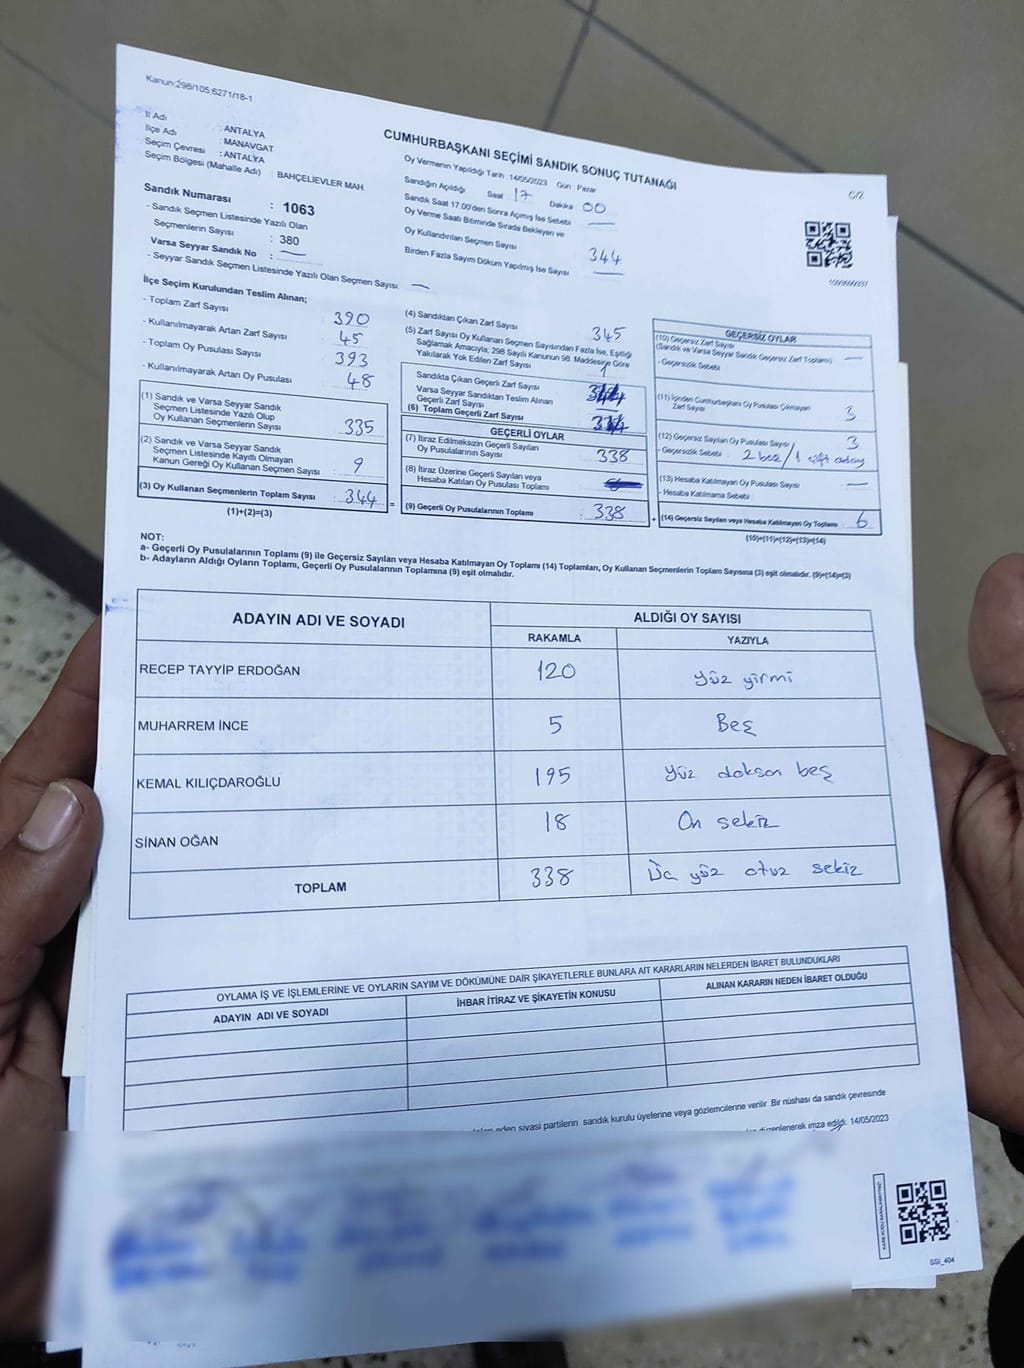 Kanun:298/105:6271/18-1
İl Adı : ANTALYA
İlçe Adı : MANAVGAT
Seçim Çevresi : ANTALYA
Seçim Bölgesi (Mahalle Adı) : BAHÇELİEVLER MAH.
Sandık Numarası : 1063
- Sandık Seçmen Listesinde Yazılı Olan
Seçmenlerin Sayısı : 380
Varsa Seyyar Sandık No : —
- Seyyar Sandık Seçmen Listesinde Yazılı Olan Seçmen Sayısı : —
CUMHURBAŞKANI SEÇİMİ SANDIK SONUÇ TUTANAĞI
C/2
Oy Vermenin Yapıldığı Tarih : 14/05/2023 Gün : Pazar
Sandığın Açıldığı Saat 17 Dakika 00
Sandık Saat 17.00'den Sonra Açımış İse Sebebi —
Oy Verme Saati Bitiminde Sırada Bekleyen ve
Oy Kullandırılan Seçmen Sayısı 344
Birden Fazla Sayım Döküm Yapılmış İse Sayısı —
İlçe Seçim Kurulundan Teslim Alınan;
- Toplam Zarf Sayısı : 390
- Kullanılmayarak Artan Zarf Sayısı : 45
- Toplam Oy Pusulası Sayısı : 393
- Kullanılmayarak Artan Oy Pusulası : 48
(1) Sandık ve Varsa Seyyar Sandık
Seçmen Listesinde Yazılı Olup
Oy Kullanan Seçmenlerin Sayısı : 335
(2) Sandık ve Varsa Seyyar Sandık
Seçmen Listesinde Kayıtlı Olmayan
Kanun Gereği Oy Kullanan Seçmen Sayısı : 9
(3) Oy Kullanan Seçmenlerin Toplam Sayısı : 344 =
(1)+(2)=(3)
(4) Sandıktan Çıkan Zarf Sayısı : 345
(5) Zarf Sayısı Oy Kullanan Seçmen Sayısından Fazla İse, Eşitliği
Sağlamak Amacıyla; 298 Sayılı Kanunun 98. Maddesine Göre
Yakılarak Yok Edilen Zarf Sayısı : 1
Sandıkta Çıkan Geçerli Zarf Sayısı : 344
Varsa Seyyar Sandıktan Teslim Alınan
Geçerli Zarf Sayısı : —
(6) Toplam Geçerli Zarf Sayısı
GEÇERLİ OYLAR
(7) İtiraz Edilmeksizin Geçerli Sayılan
Oy Pusulalarının Sayısı : 338
(8) İtiraz Üzerine Geçerli Sayılan veya
Hesaba Katılan Oy Pusulası Toplamı :
(9) Geçerli Oy Pusulalarının Toplamı : 338 +
GEÇERSİZ OYLAR
(10) Geçersiz Zarf Sayısı
(Sandık ve Varsa Seyyar Sandık Geçersiz Zarf Toplamı) : —
- Geçersizlik Sebebi :
(11) İçinden Cumhurbaşkanı Oy Pusulası Çıkmayan
Zarf Sayısı : 3
(12) Geçersiz Sayılan Oy Pusulası Sayısı : 3
- Geçersizlik Sebebi : 2 boş / 1 çift aday
(13) Hesaba Katılmayan Oy Pusulası Sayısı : —
- Hesaba Katılmama Sebebi :
(14) Geçersiz Sayılan veya Hesaba Katılmayan Oy Toplamı : 6
(10)+(11)+(12)+(13)=(14)
NOT:
a- Geçerli Oy Pusulalarının Toplamı (9) ile Geçersiz Sayılan veya Hesaba Katılmayan Oy Toplamı (14) Toplamları, Oy Kullanan Seçmenlerin Toplam Sayısına (3) eşit olmalıdır. (9)+(14)=(3)
b- Adayların Aldığı Oyların Toplamı, Geçerli Oy Pusulalarının Toplamına (9) eşit olmalıdır.
ADAYIN ADI VE SOYADI ALDIĞI OY SAYISI
RAKAMLA YAZIYLA
RECEP TAYYİP ERDOĞAN 120 Yüz yirmi
MUHARREM İNCE 5 Beş
KEMAL KILIÇDAROĞLU 195 Yüz doksan beş
SİNAN OĞAN 18 On sekiz
TOPLAM 338 Üç yüz otuz sekiz
OYLAMA İŞ VE İŞLEMLERİNE VE OYLARIN SAYIM VE DÖKÜMÜNE DAİR ŞİKAYETLERLE BUNLARA AİT KARARLARIN NELERDEN İBARET BULUNDUKLARI
ADAYIN ADI VE SOYADI İHBAR İTİRAZ VE ŞİKAYETİN KONUSU ALINAN KARARIN NEDEN İBARET OLDUĞU
eden siyasi partilerin sandık kurulu üyelerine veya gözlemcilerine verilir. Bir nüshası da sandık çevresinde
düzenlenerek imza edildi. 14/05/2023
SSI_404